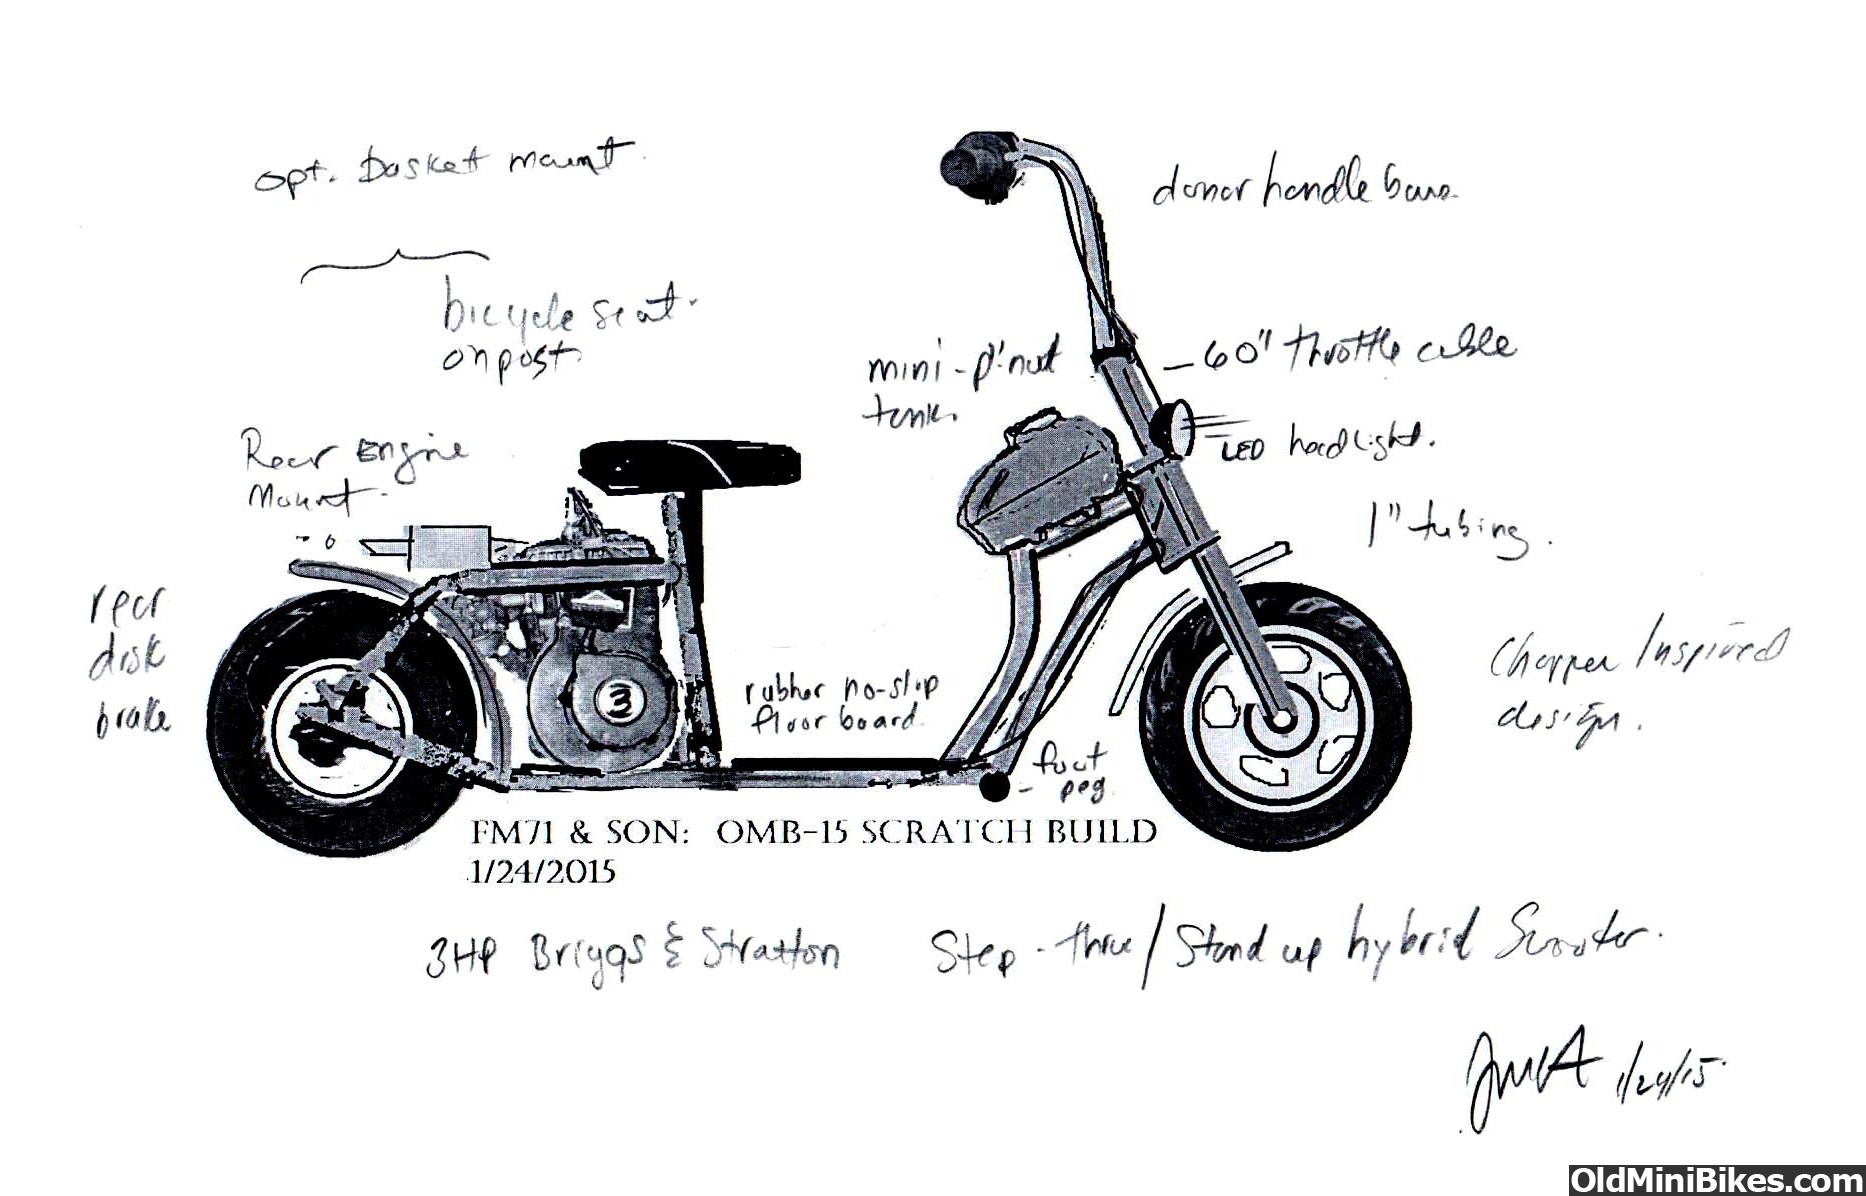 opt. basket mount
donor handle bars
bicycle seat
on post
mini-p'nut
tank.
60" throttle cable
LED headlight.
Rear Engine
Mount
1" tubing.
rear
disk
brake
Chopper Inspired
design.
rubber no-slip
floor board.
foot
peg
3
FM71 & SON: OMB-15 SCRATCH BUILD
1/24/2015
3HP Briggs & Stratton
Step-thru/Stand up hybrid Scooter.
1/24/15
OldMiniBikes.com